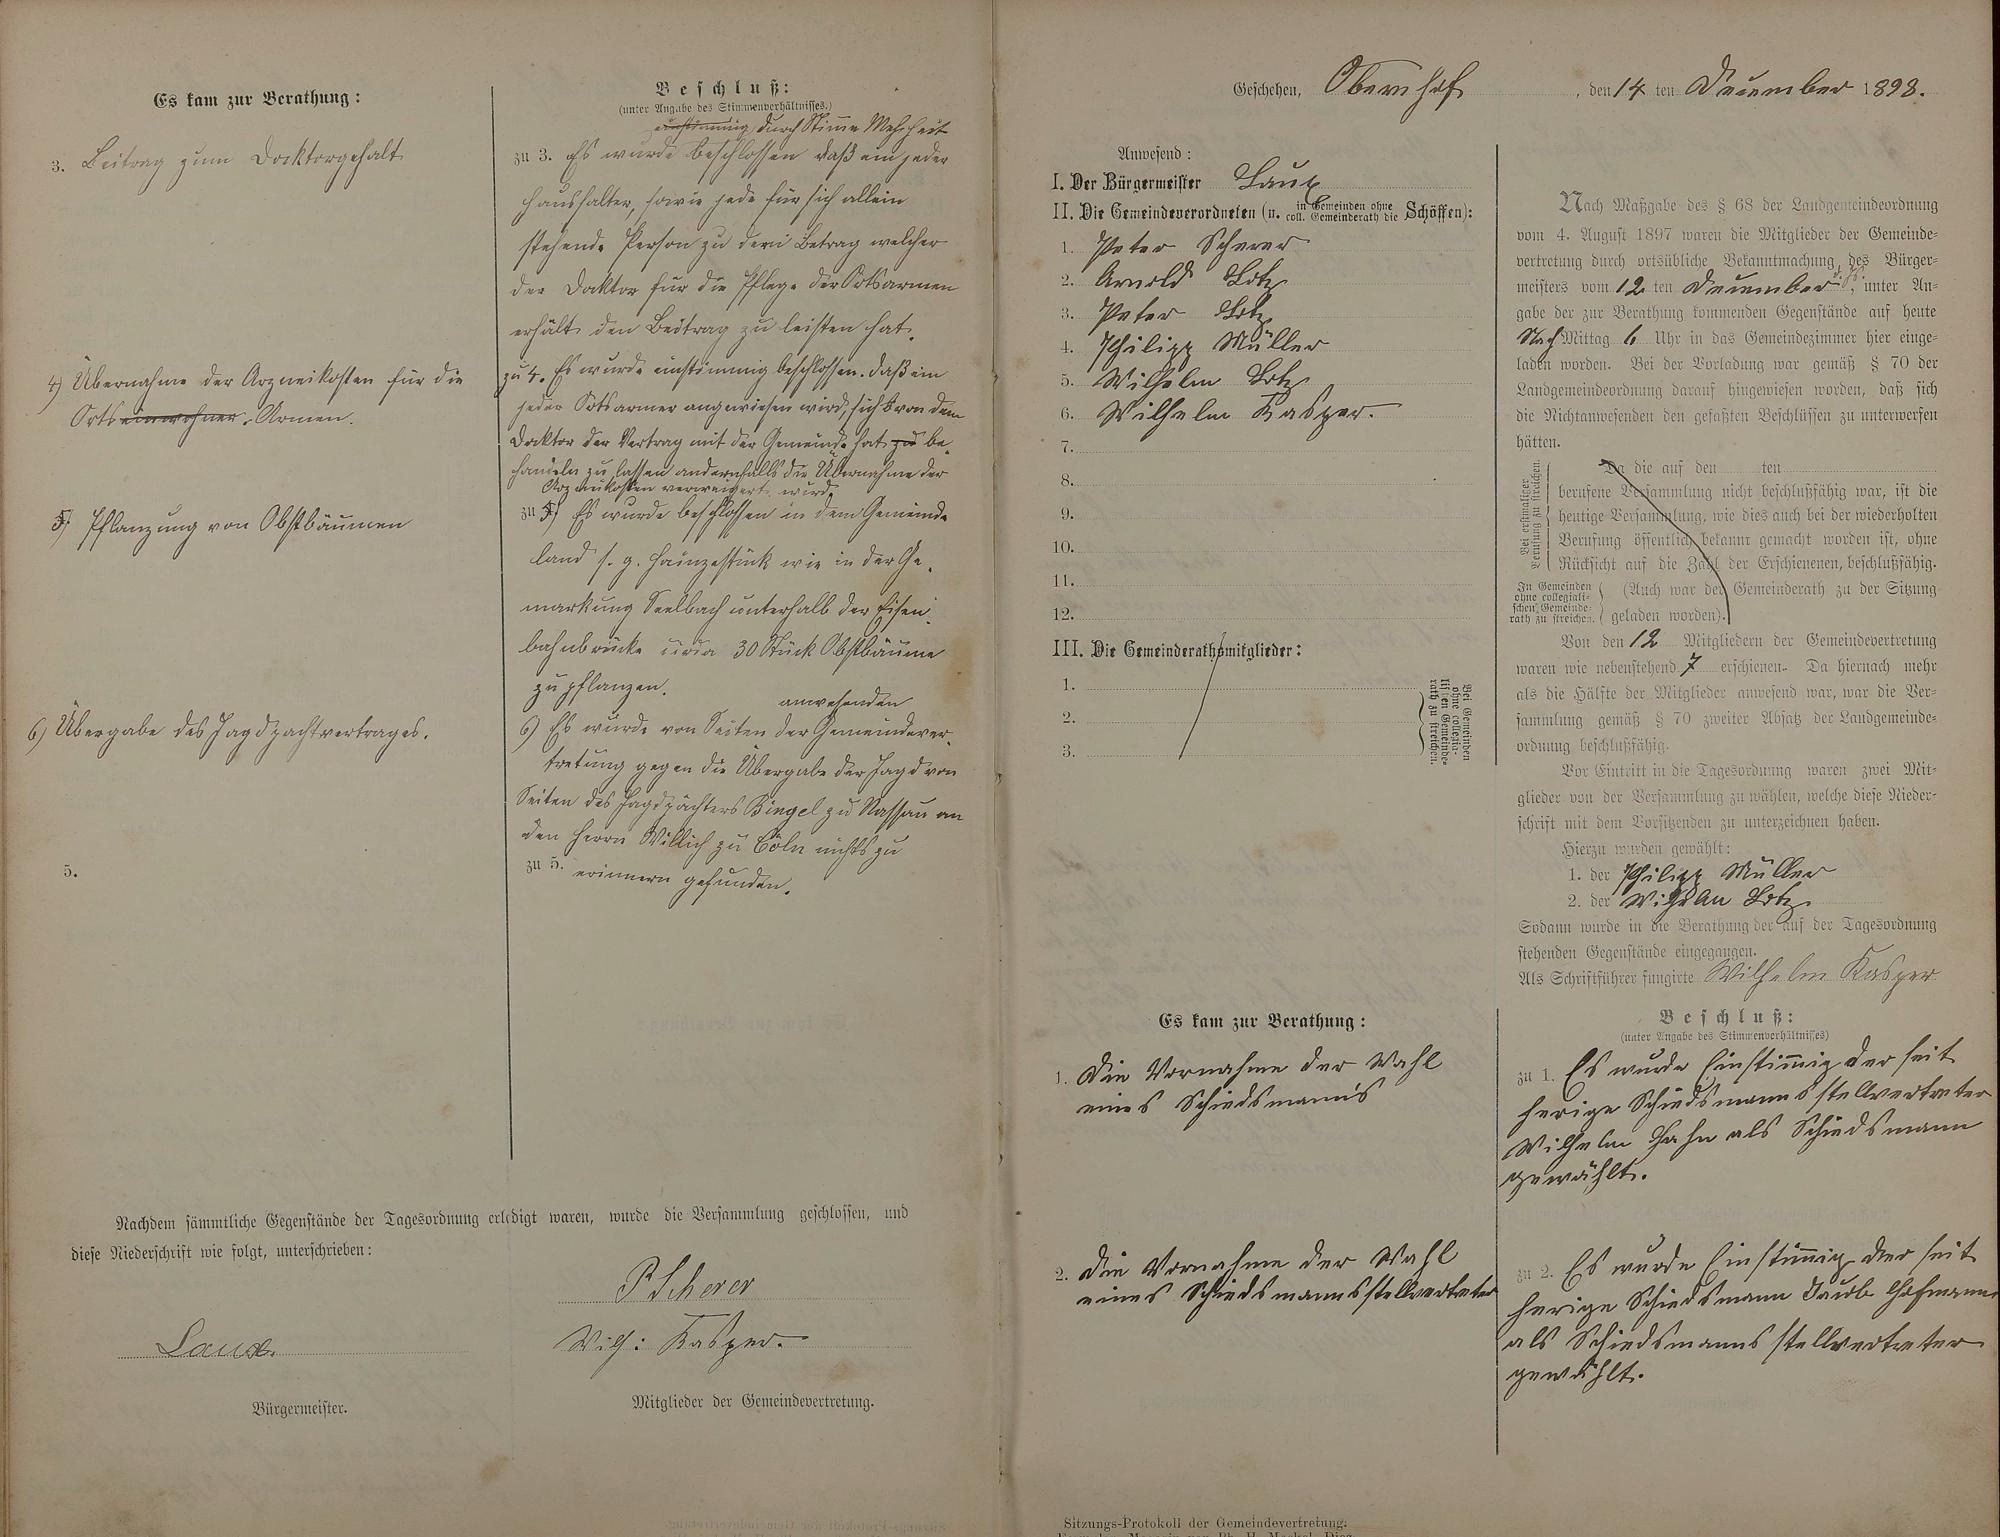 Es kam zur Berathung:
3. Beitrag zum Docktorgehalt
4) Übernahme der Arzneikosten für die
Orts einwohner. Armen.
5) Pflanzung von Obstbäumen
6) Übergabe des Jagdpachtvertrages.
5.
Beschluß:
(unter Angabe des Stimmenverhältnisses.)
einstimmig durch Stimme Mehrheit
zu 3. Es wurde beschlossen daß ein jeder
Haushalter, sowie jede für sich allein
stehende Person zu dem Betrag welcher
der Docktor für die Pflege der Ortsarmen
erhält den Beitrag zu leisten hat.
zu 4. Es wurde einstimmig beschlossen. daß ein
jeder Ortsarmer angewiesen wird, sich von dem
Docktor der Vertrag mit der Gemeinde hat zu be-
handeln zu lassen andernfalls die Übernahme der
Arzneikosten verweigert wird.
zu 5) Es wurde beschlossen in dem Gemeinde
land s. g. Hainzestück wie in der Ge-
markung Seelbach unterhalb der Eisen-
bahnbrücke circa 30 Stück Obstbäume
zu pflanzen.
anwesenden
6) Es wurde von Seiten der Gemeindever-
tretung gegen die Übergabe der Jagd von
Seiten des Jagdpächters Bingel zu Nassau an
den Herrn Willich zu Cöln nichts zu
zu 5. erinnern gefunden.
Nachdem sämmtliche Gegenstände der Tagesordnung erledigt waren, wurde die Versammlung geschlossen, und
diese Niederschrift wie folgt, unterschrieben:
P Scherer
Laux.
Wilh: Kasper.
Bürgermeister.
Mitglieder der Gemeindevertretung.
Geschehen, Obernhof, den 14 ten December 1898.
Anwesend:
I. Der Bürgermeister Laux
II. Die Gemeindeverordneten (u. in Gemeinden ohne coll. Gemeinderath die Schöffen):
1. Peter Scherer
2. Arnold Lotz
3. Peter Lotz
4. Philipp Müller
5. Wilhelm Lotz
6. Wilhelm Kasper.
7.
8.
9.
10.
11.
12.
III. Die Gemeinderathsmitglieder:
1.
2.
3.
Bei Gemeinden
ohne collegia-
lischen Gemeinde-
rath zu streichen.
Nach Maßgabe des § 68 der Landgemeindeordnung
vom 4. August 1897 waren die Mitglieder der Gemeinde-
vertretung durch ortsübliche Bekanntmachung des Bürger-
meisters vom 12 ten December d. Js., unter An-
gabe der zur Berathung kommenden Gegenstände auf heute
Nach Mittag 6 Uhr in das Gemeindezimmer hier einge-
laden worden. Bei der Vorladung war gemäß § 70 der
Landgemeindeordnung darauf hingewiesen worden, daß sich
die Nichtanwesenden den gefaßten Beschlüssen zu unterwerfen
hätten.
Bei erstmaliger
Berufung zu streichen.
Da die auf den ten
berufene Versammlung nicht beschlußfähig war, ist die
heutige Versammlung, wie dies auch bei der wiederholten
Berufung öffentlich bekannt gemacht worden ist, ohne
Rücksicht auf die Zahl der Erschienenen, beschlußfähig.
In Gemeinden
ohne collegiali-
schen Gemeinde-
rath zu streichen.
(Auch war der Gemeinderath zu der Sitzung
geladen worden).
Von den 12 Mitgliedern der Gemeindevertretung
waren wie nebenstehend 7 erschienen. Da hiernach mehr
als die Hälfte der Mitglieder anwesend war, war die Ver-
sammlung gemäß § 70 zweiter Absatz der Landgemeinde-
ordnung beschlußfähig.
Vor Eintritt in die Tagesordnung waren zwei Mit-
glieder von der Versammlung zu wählen, welche diese Nieder-
schrift mit dem Vorsitzenden zu unterzeichnen haben.
Hierzu wurden gewählt:
1. der Philipp Müller
2. der Lotz
Sodann wurde in die Berathung der auf der Tagesordnung
stehenden Gegenstände eingegangen.
Als Schriftführer fungirte Wilhelm Kasper
Es kam zur Berathung:
1. Die Vornahme der Wahl
eines Schiedsmann's
2. Die Vornahme der Wahl
eines Schiedsmannsstellvertreter
Beschluß:
(unter Angabe des Stimmenverhältnisses)
zu 1. Es wurde Einstimmig der seit
herige Schiedsmannsstellvertreter
Wilhelm Hahn als Schiedsmann
gewählt.
zu 2. Es wurde Einstimmig der seit
herige Schiedsmann Jacob Hofmann
als Schiedsmannsstellvertreter
gewählt.
Sitzungs-Protokoll der Gemeindevertretung.